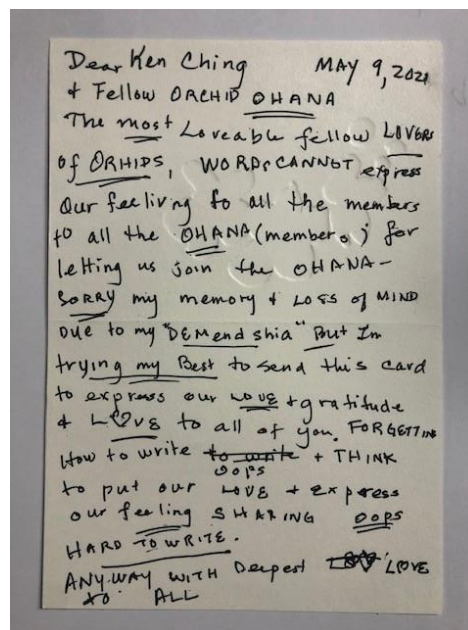 Dear Ken Ching MAY 9, 2021
+ Fellow ORCHID OHANA
The most Loveable fellow LOVERS
of ORHIDS, WORDS CANNOT express
Our feeliving to all the members
to all the OHANA (member.) for
letting us join the OHANA-
SORRY my memory + LOSS of MIND
Due to my "DEMendshia" But Im
trying my Best to send this card
to express our LOVE + gratitude
+ LOVE to all of you. FORGETTING
How to write to write + THINK
oops
to put our LOVE + express
our feeling SHARING oops
HARD TO WRITE.
ANY-WAY WITH Deepest LOVE
TO ALL